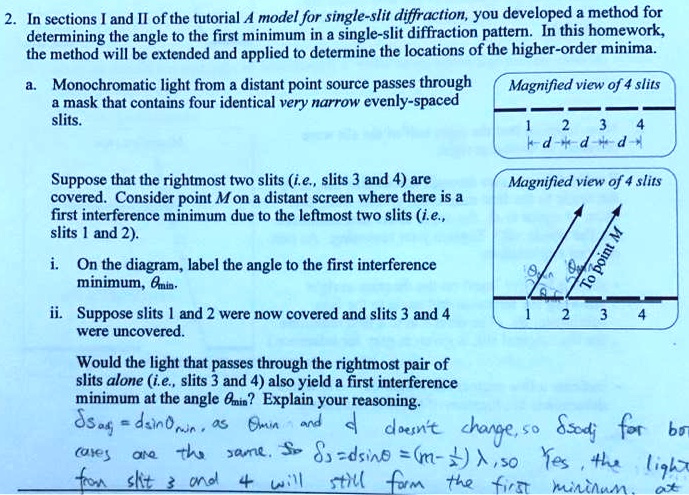 2. In sections I and II of the tutorial A model for single-slit diffraction, you developed a method for
determining the angle to the first minimum in a single-slit diffraction pattern. In this homework,
the method will be extended and applied to determine the locations of the higher-order minima.
a. Monochromatic light from a distant point source passes through
a mask that contains four identical very narrow evenly-spaced
slits.
Magnified view of 4 slits
1 2 3 4
d d d
Suppose that the rightmost two slits (i.e., slits 3 and 4) are
covered. Consider point M on a distant screen where there is a
first interference minimum due to the leftmost two slits (i.e.,
slits 1 and 2).
i. On the diagram, label the angle to the first interference
minimum, θmin.
ii. Suppose slits 1 and 2 were now covered and slits 3 and 4
were uncovered.
Would the light that passes through the rightmost pair of
slits alone (i.e., slits 3 and 4) also yield a first interference
minimum at the angle θmin? Explain your reasoning.
Magnified view of 4 slits
θmin
To point M
1 2 3 4
= dsinθmin, as θmin and d doesn't change, so for bo
cases are the same. So = dsinθ = (m-½)λ, so Yes, the light
from slit 3 and 4 will still form the first minimum at